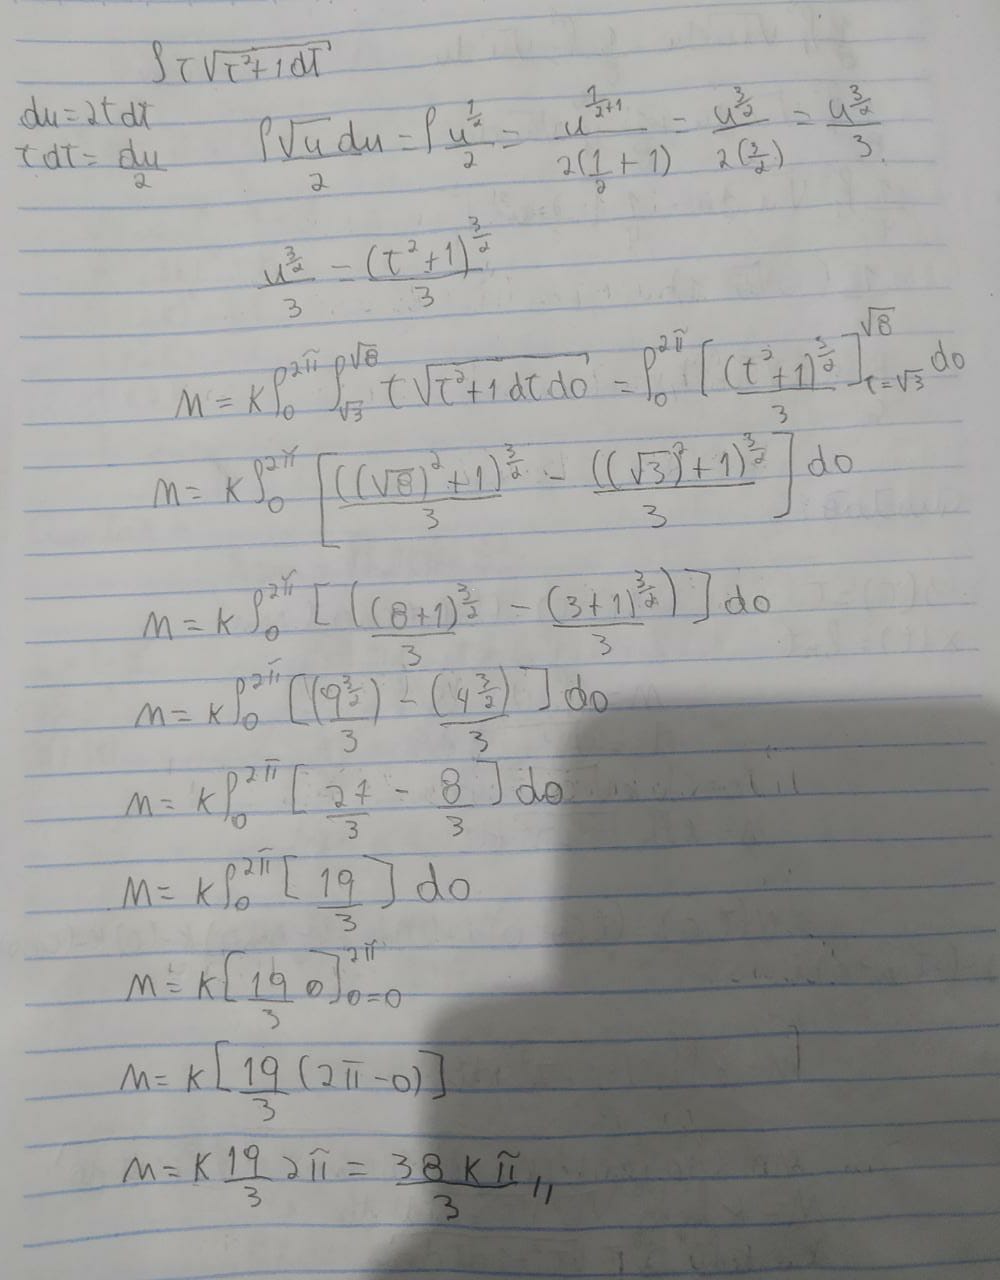 ∫ t √(t²+1) dt
du = 2t dt
t dt = du/2
∫ √u du/2 = ∫ u^(1/2)/2 = u^(1/2+1)/(2(1/2+1)) = u^(3/2)/(2(3/2)) = u^(3/2)/3.
u^(3/2)/3 = (t²+1)^(3/2)/3
M = K ∫₀^(2π) ∫_(√3)^(√8) t √(t²+1) dt dθ = ∫₀^(2π) [(t²+1)^(3/2)/3]_(t=√3)^(√8) dθ
M = K ∫₀^(2π) [((√8)²+1)^(3/2)/3 - ((√3)²+1)^(3/2)/3] dθ
M = K ∫₀^(2π) [((8+1)^(3/2)/3 - (3+1)^(3/2)/3)] dθ
M = K ∫₀^(2π) [(9^(3/2))/3 - (4^(3/2))/3] dθ
M = K ∫₀^(2π) [27/3 - 8/3] dθ
M = K ∫₀^(2π) [19/3] dθ
M = K [19/3 θ]_(θ=0)^(2π)
M = K [19/3 (2π-0)]
M = K 19/3 2π = 38Kπ/3 //